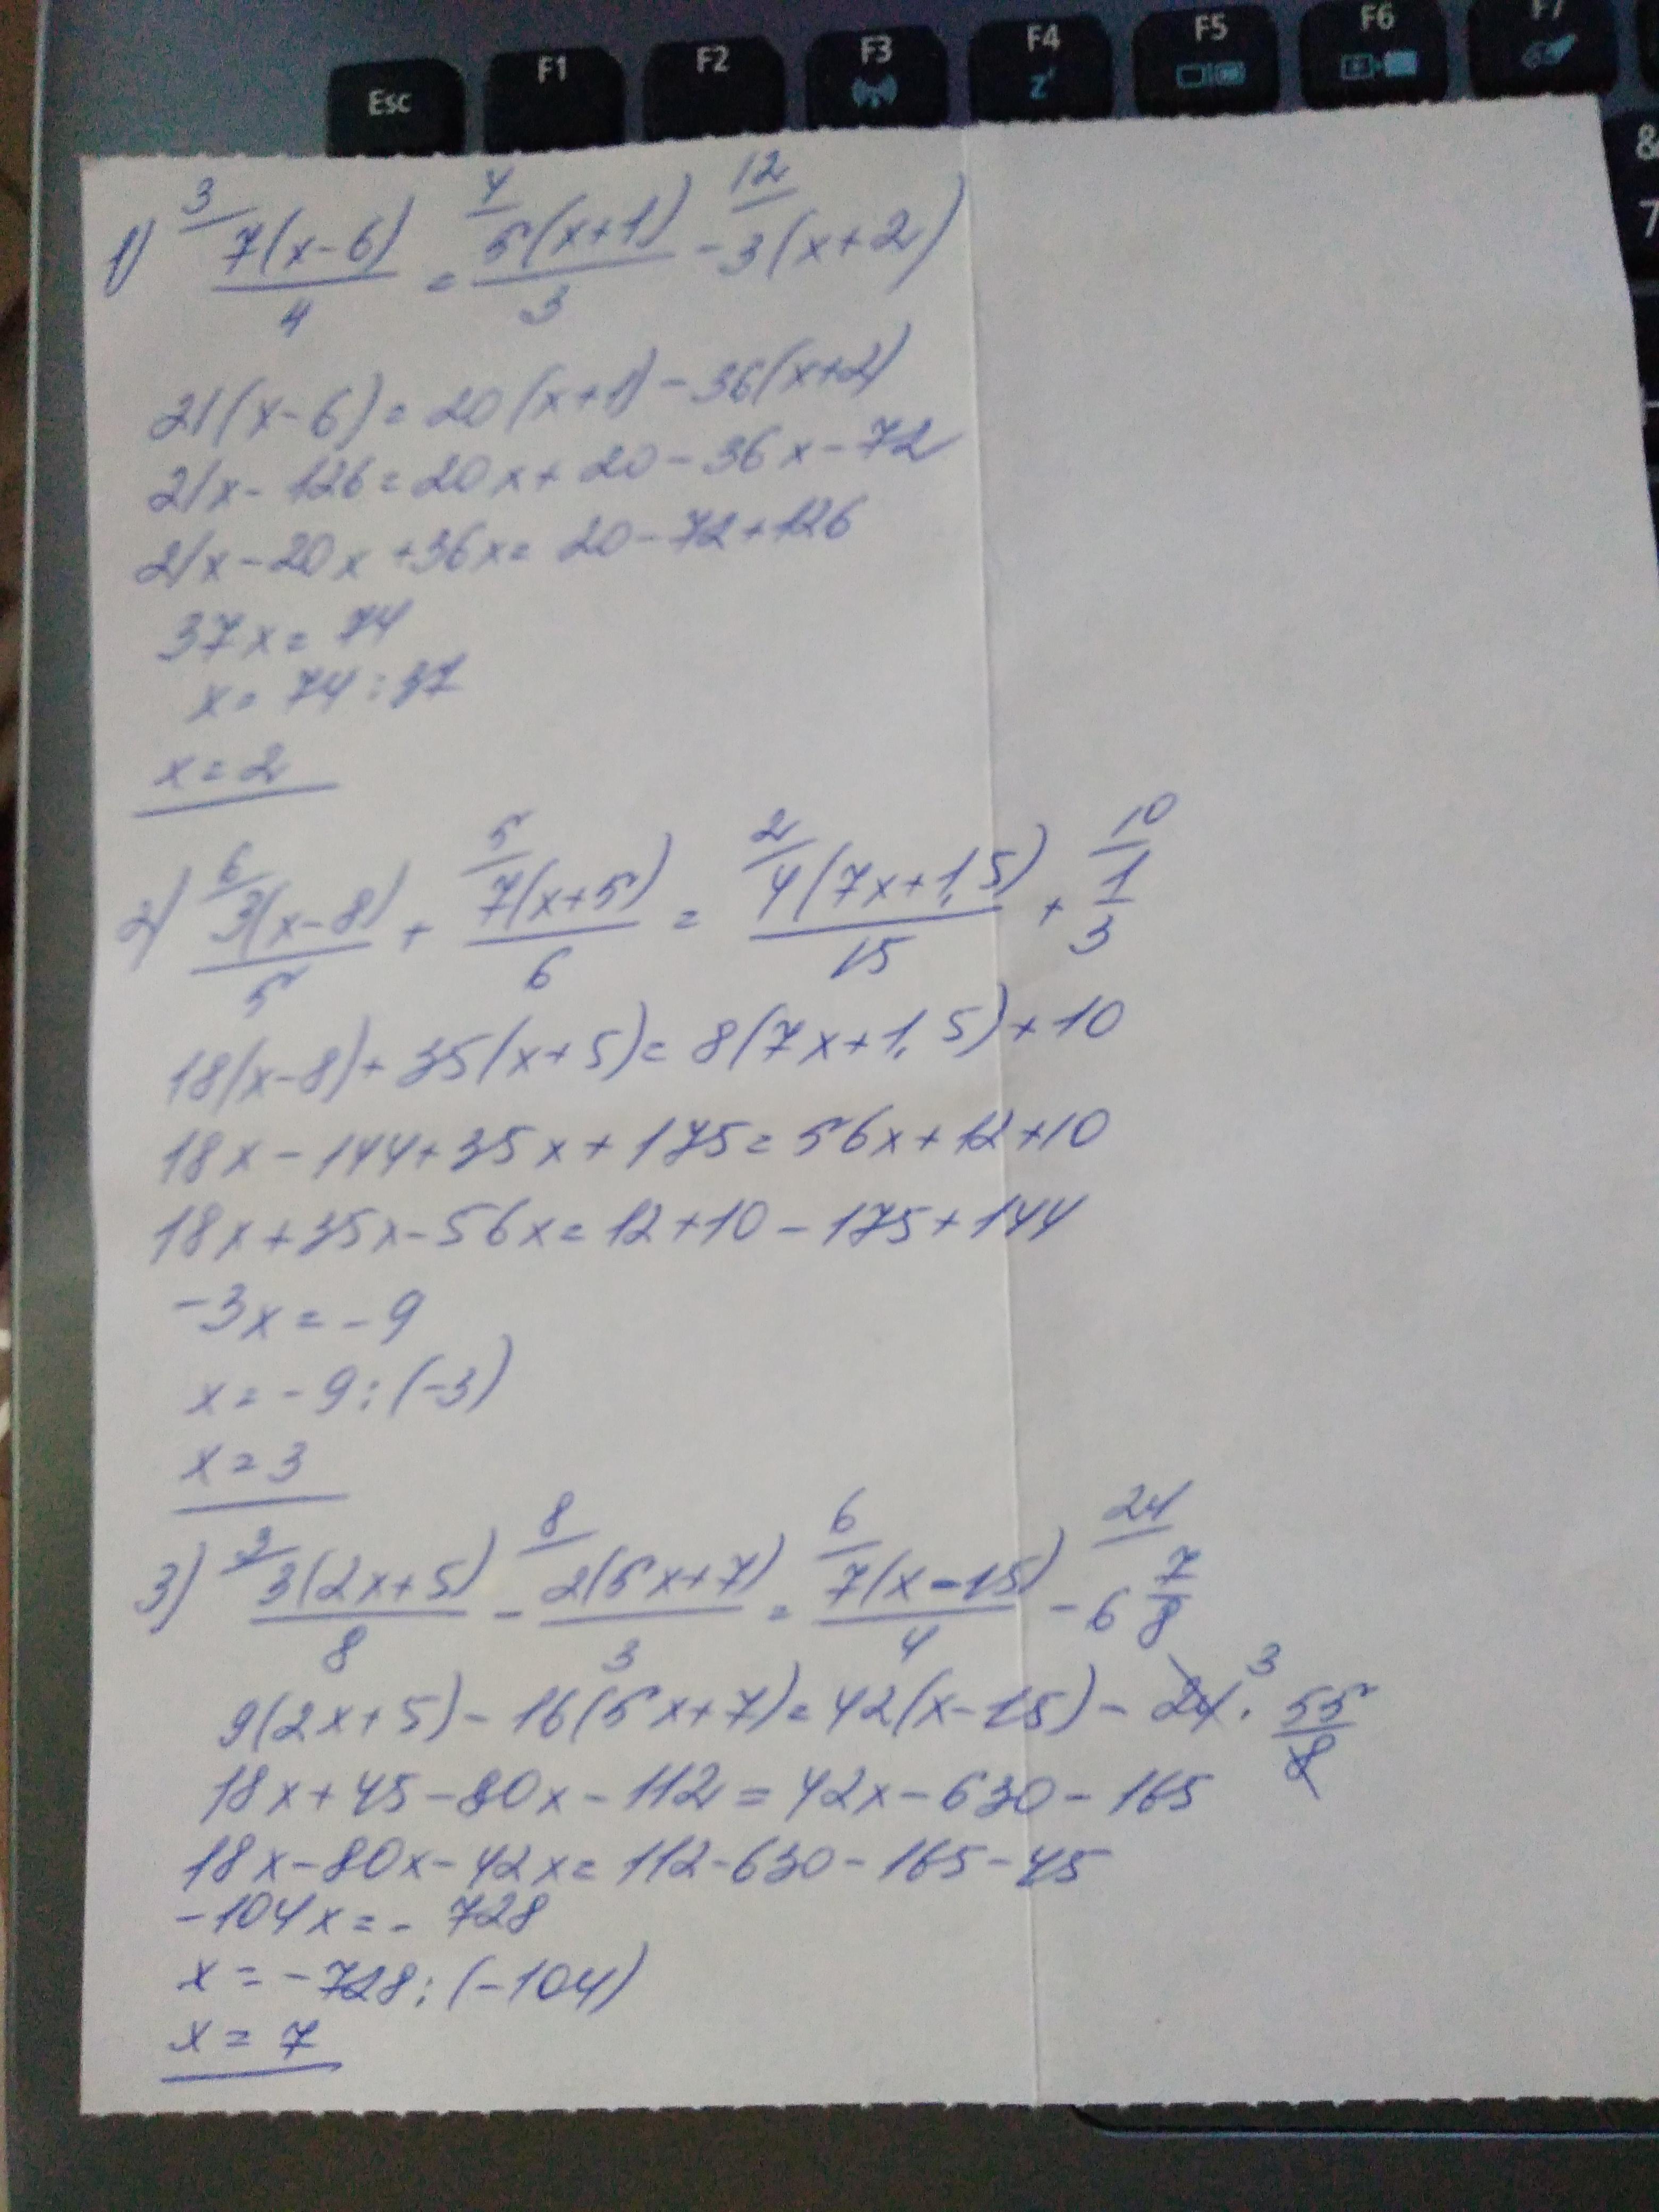 Esc F1 F2 F3 F4 F5 F6 F7
&
7
3 4 12
1) 7(x-6)/4 = 5(x+1)/3 - 3(x+2)
21(x-6)=20(x+1)-36(x+2)
21x-126=20x+20-36x-72
21x-20x+36x=20-72+126
37x=74
x=74:37
x=2
6 5 2 10
2) 3(x-8)/5 + 7(x+5)/6 = 4(7x+1,5)/15 + 1/3
18(x-8)+35(x+5)=8(7x+1,5)+10
18x-144+35x+175=56x+12+10
18x+35x-56x=12+10-175+144
-3x=-9
x=-9:(-3)
x=3
3 8 6 24
3) 3(2x+5)/8 - 2(5x+7)/3 = 7(x-15)/4 - 6 7/8
9(2x+5)-16(5x+7)=42(x-15)-24 3 · 55/8
18x+45-80x-112=42x-630-165
18x-80x-42x=112-630-165-45
-104x=-728
x=-728:(-104)
x=7